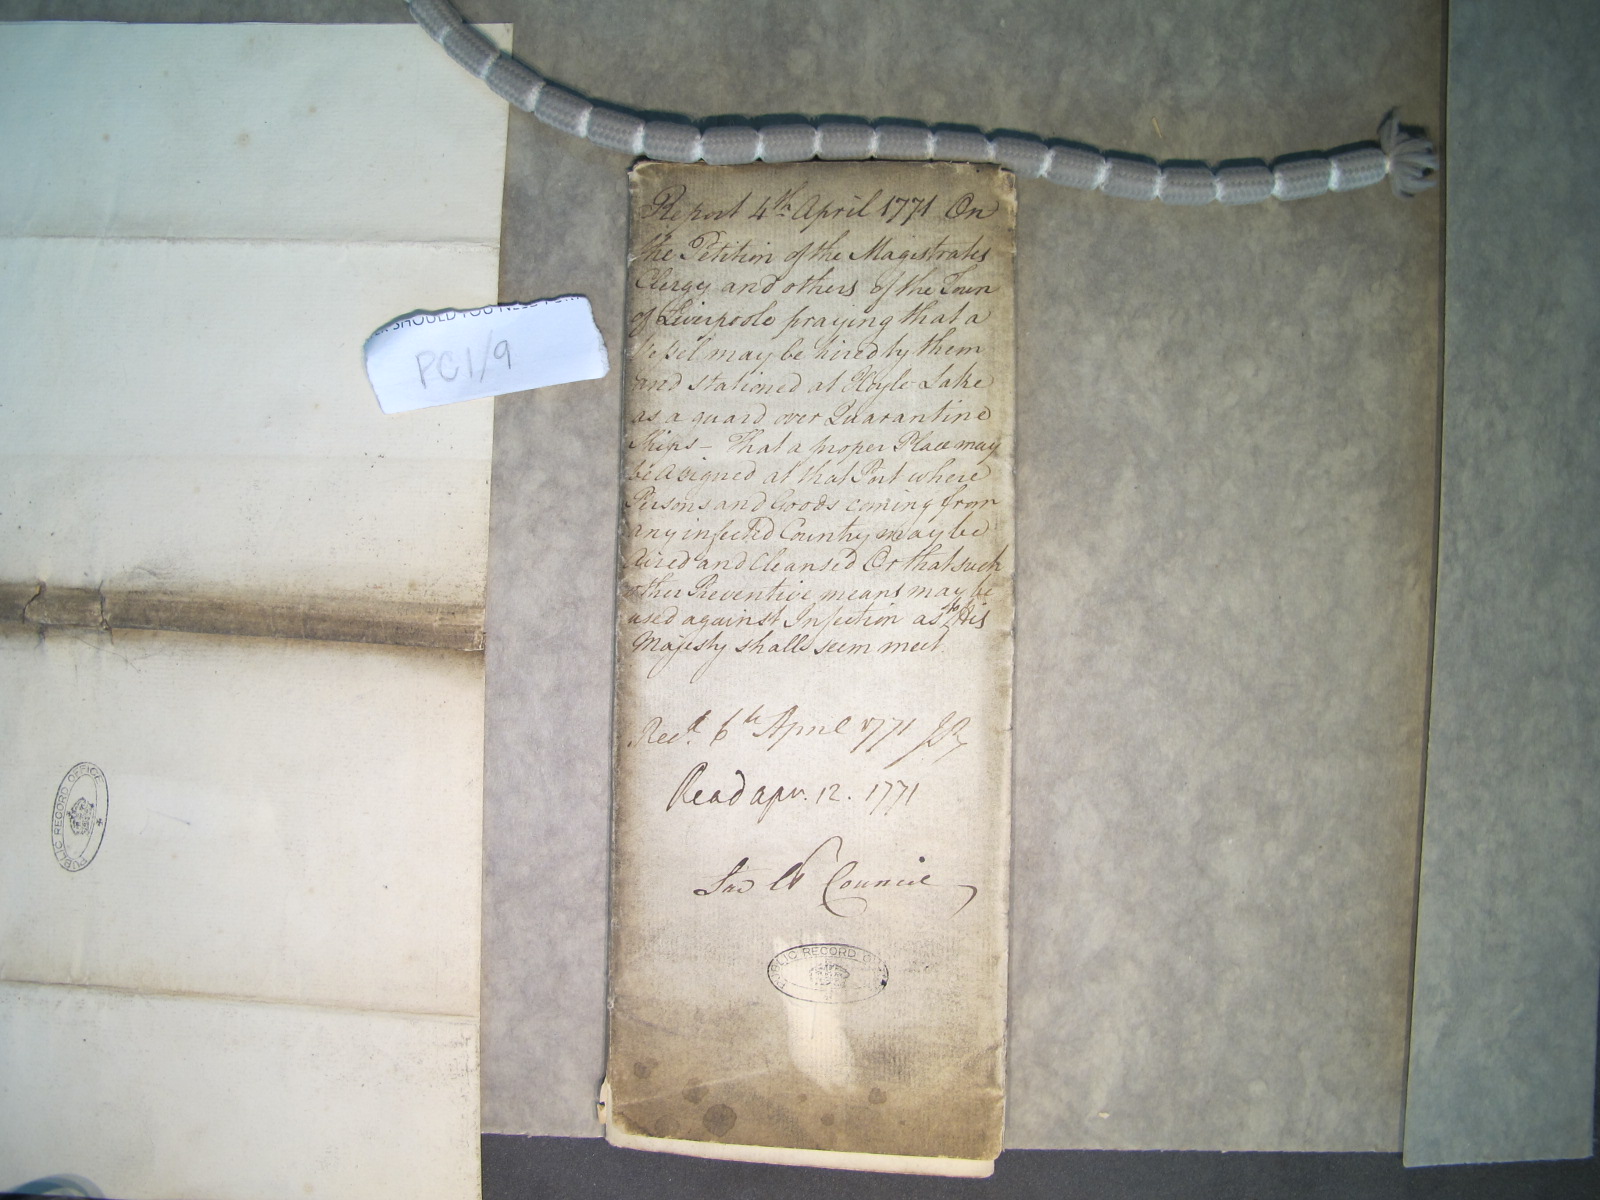 Report 4th April 1771 On
the Petition of the Magistrates
Clergy and others of the Town
of Liverpoole praying that a
Vessel may be hired by them
and stationed at Hoyle Lake
as a guard over Quarantine
Ships – That a proper Place may
be assigned at that Port where
Persons and Goods coming from
any infected Country may be
aired and Cleansed Or that such
other Preventive means may be
used against Infection as to His
Majesty shall seem meet
Recd. 6th April 1771
Read apr. 12. 1771
Council
PUBLIC RECORD OFFICE
SHOULD YOU NEED
PC1/9
PUBLIC RECORD OFFICE